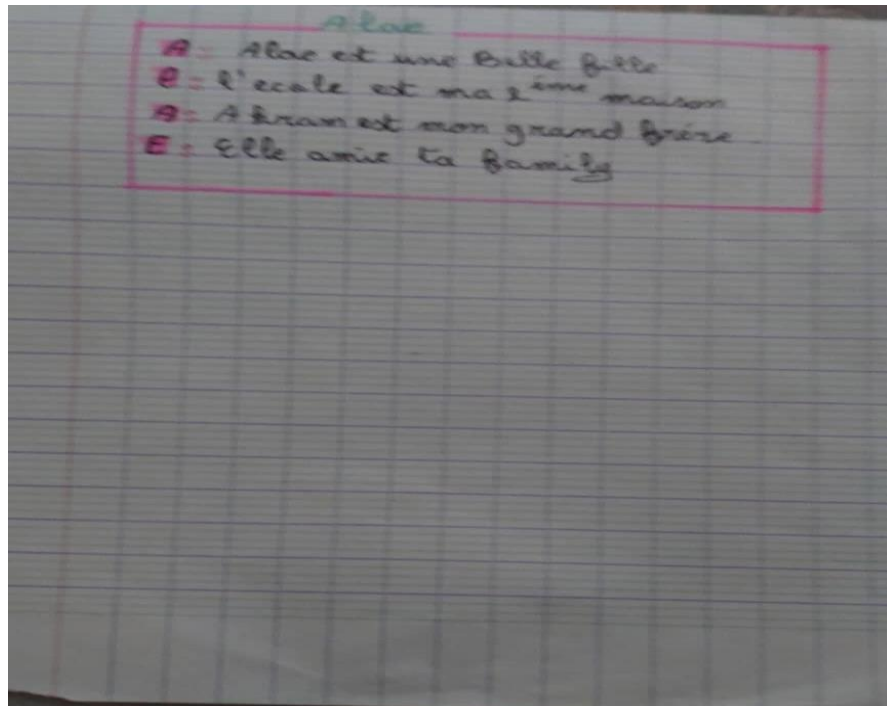 Alae
A = Alae est une Bulle fille
l = l'ecale est ma 2ème maison
A = Akram est mon grand frère
E = Elle amie ta family